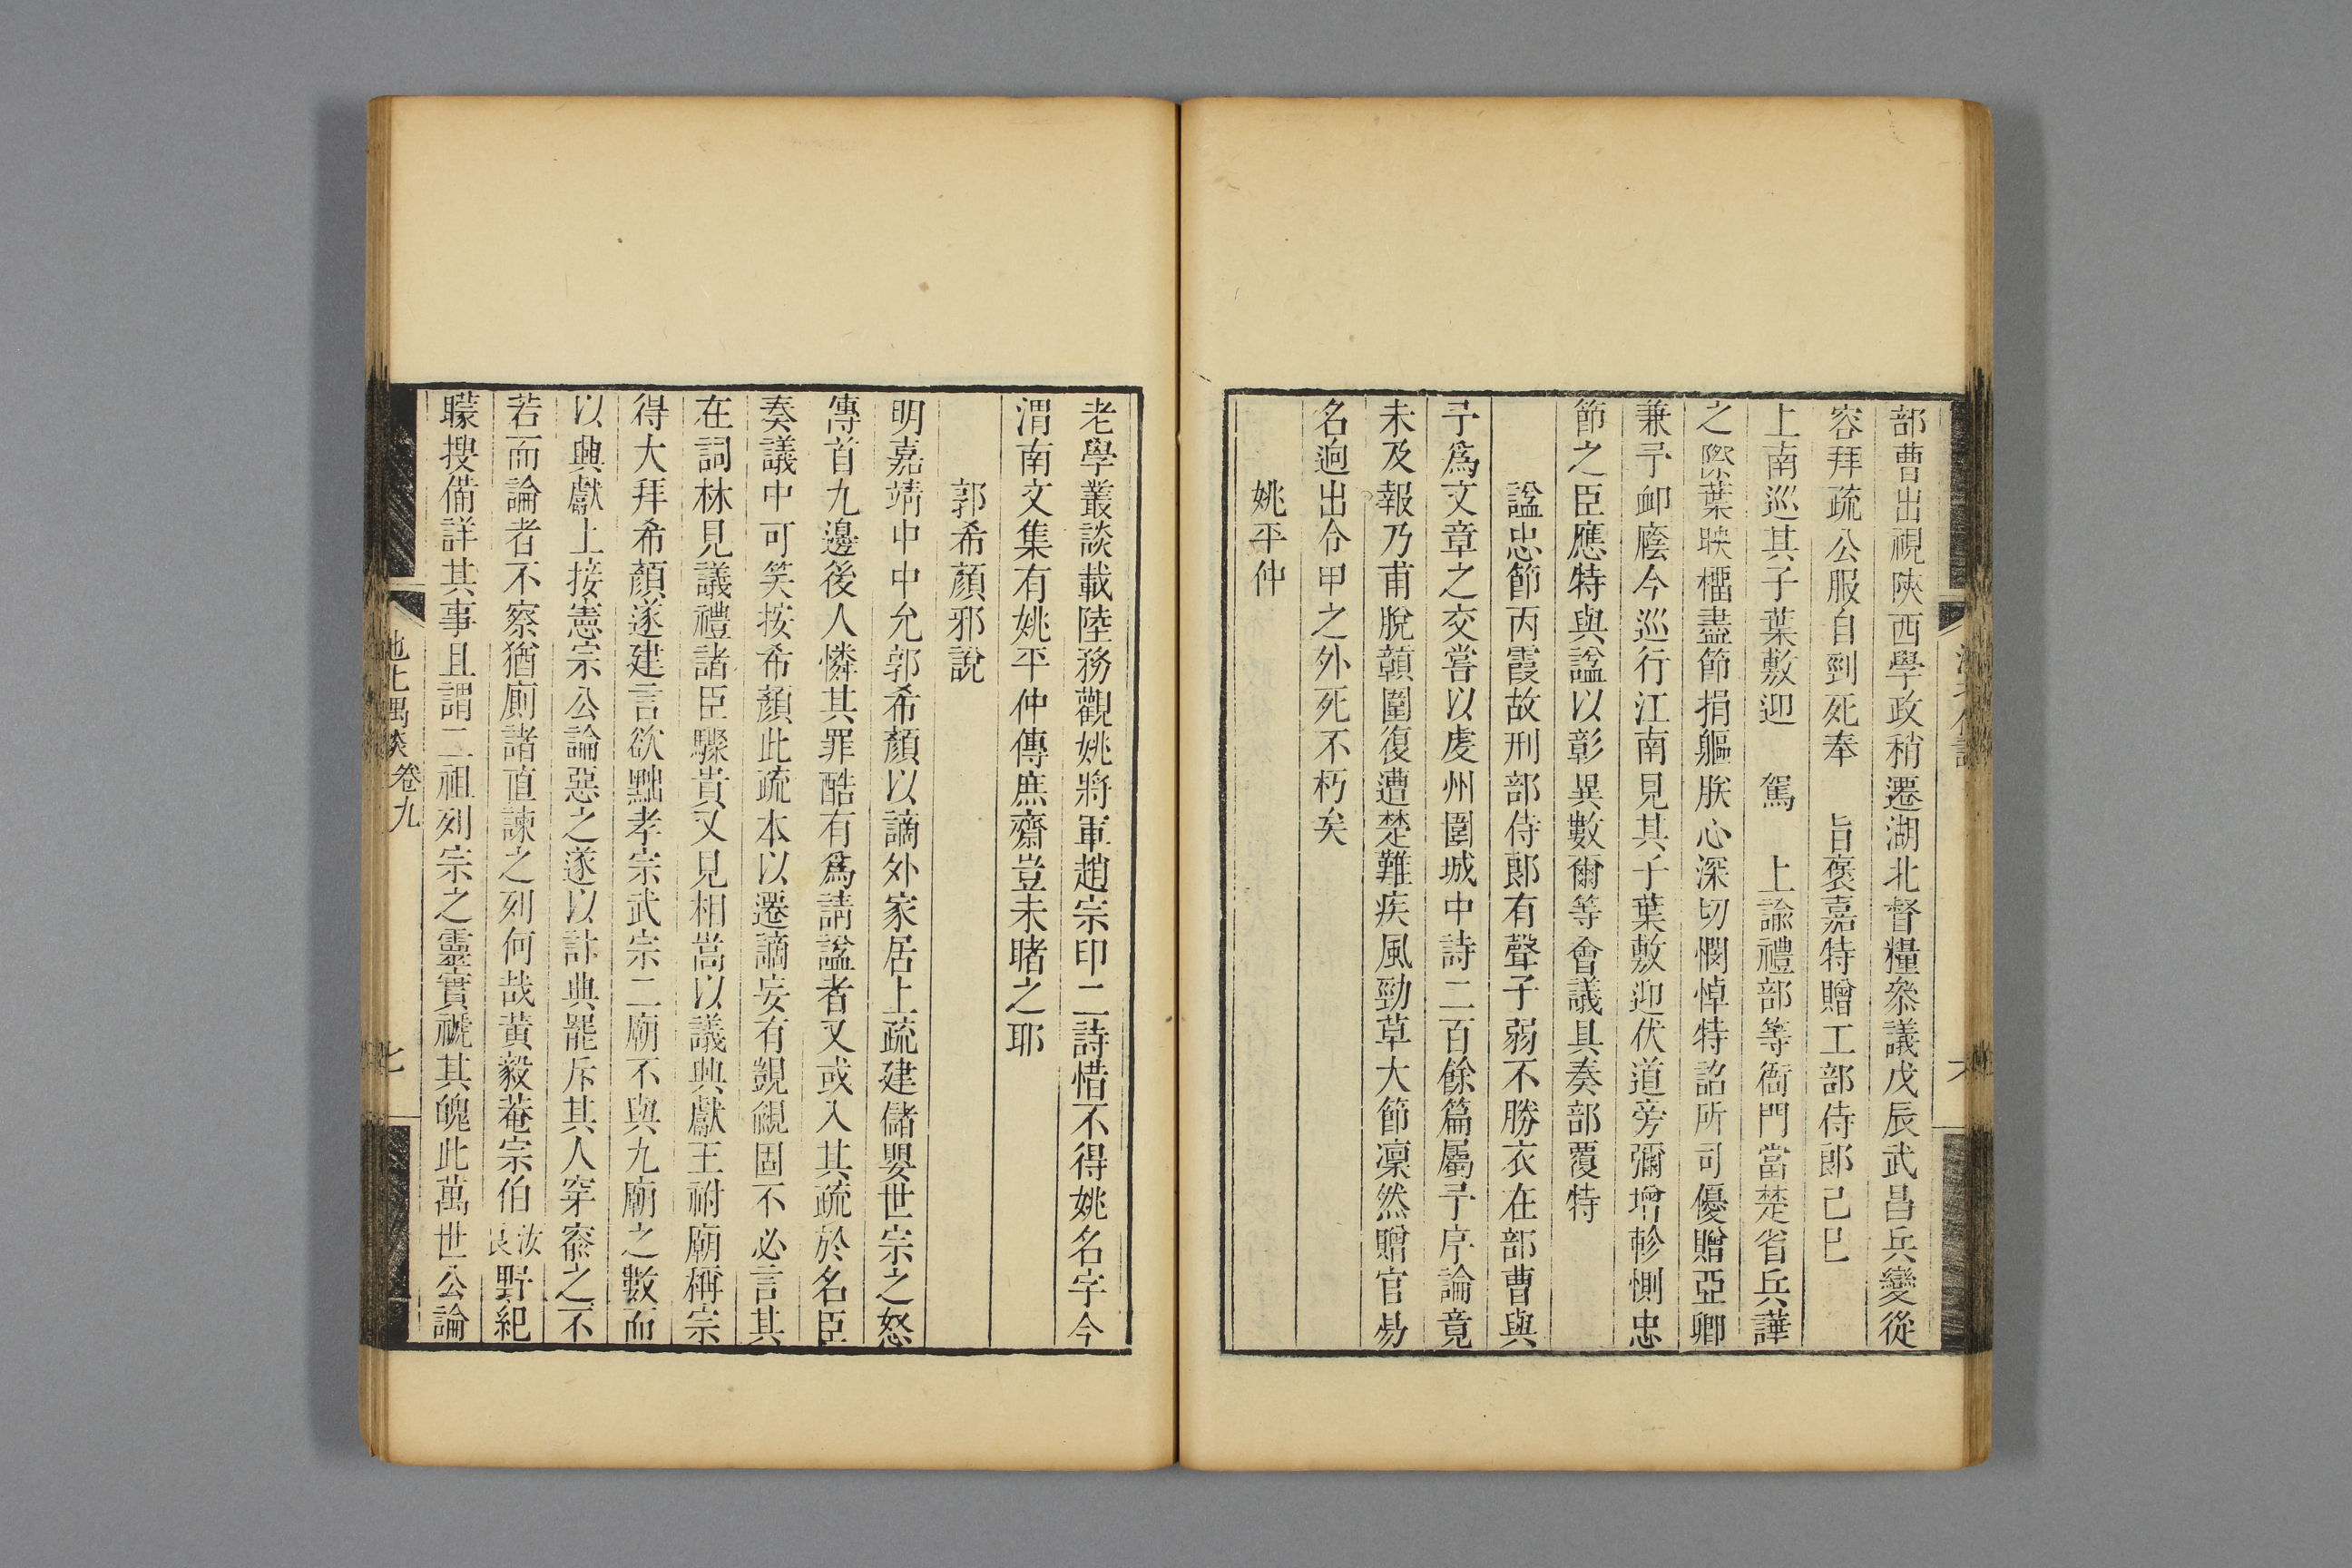 部曹出視陝西學政稍遷湖北督糧叅議戊辰武昌兵變從
容拜疏公服自剄死奉　旨褒嘉特贈工部侍郎己巳
上南巡其子葉敷迎　駕　上諭禮部等衙門當楚省兵譁
之際葉映榴盡節捐軀朕心深切憫悼特詔所司優贈亞卿
兼予卹廕今巡行江南見其子葉敷迎伏道旁彌增軫惻忠
節之臣應特與諡以彰異數爾等會議具奏部覆特
諡忠節丙霞故刑部侍郎有聲子弱不勝衣在部曹與
予爲文章之交嘗以虔州圍城中詩二百餘篇屬予序論竟
未及報乃甫脫贑圍復遭楚難疾風勁草大節凜然贈官易
名逈出令甲之外死不朽矣
姚平仲
老學叢談載陸務觀姚將軍趙宗印二詩惜不得姚名字今
渭南文集有姚平仲傳庶齋豈未睹之耶
郭希顏邪說
明嘉靖中中允郭希顏以謫外家居上疏建儲嬰世宗之怒
傳首九邊後人憐其罪酷有爲請諡者又或入其疏於名臣
奏議中可笑按希顏此疏本以遷謫妄有覬覦固不必言其
在詞林見議禮諸臣驟貴又見相嵩以議興獻王祔廟稱宗
得大拜希顏遂建言欲黜孝宗武宗二廟不與九廟之數而
以興獻上接憲宗公論惡之遂以計典罷斥其人穿窬之不
若而論者不察猶廁諸直諫之列何哉黃毅菴宗伯汝良野紀
矇搜備詳其事且謂二祖列宗之靈實褫其魄此萬世公論
卷九